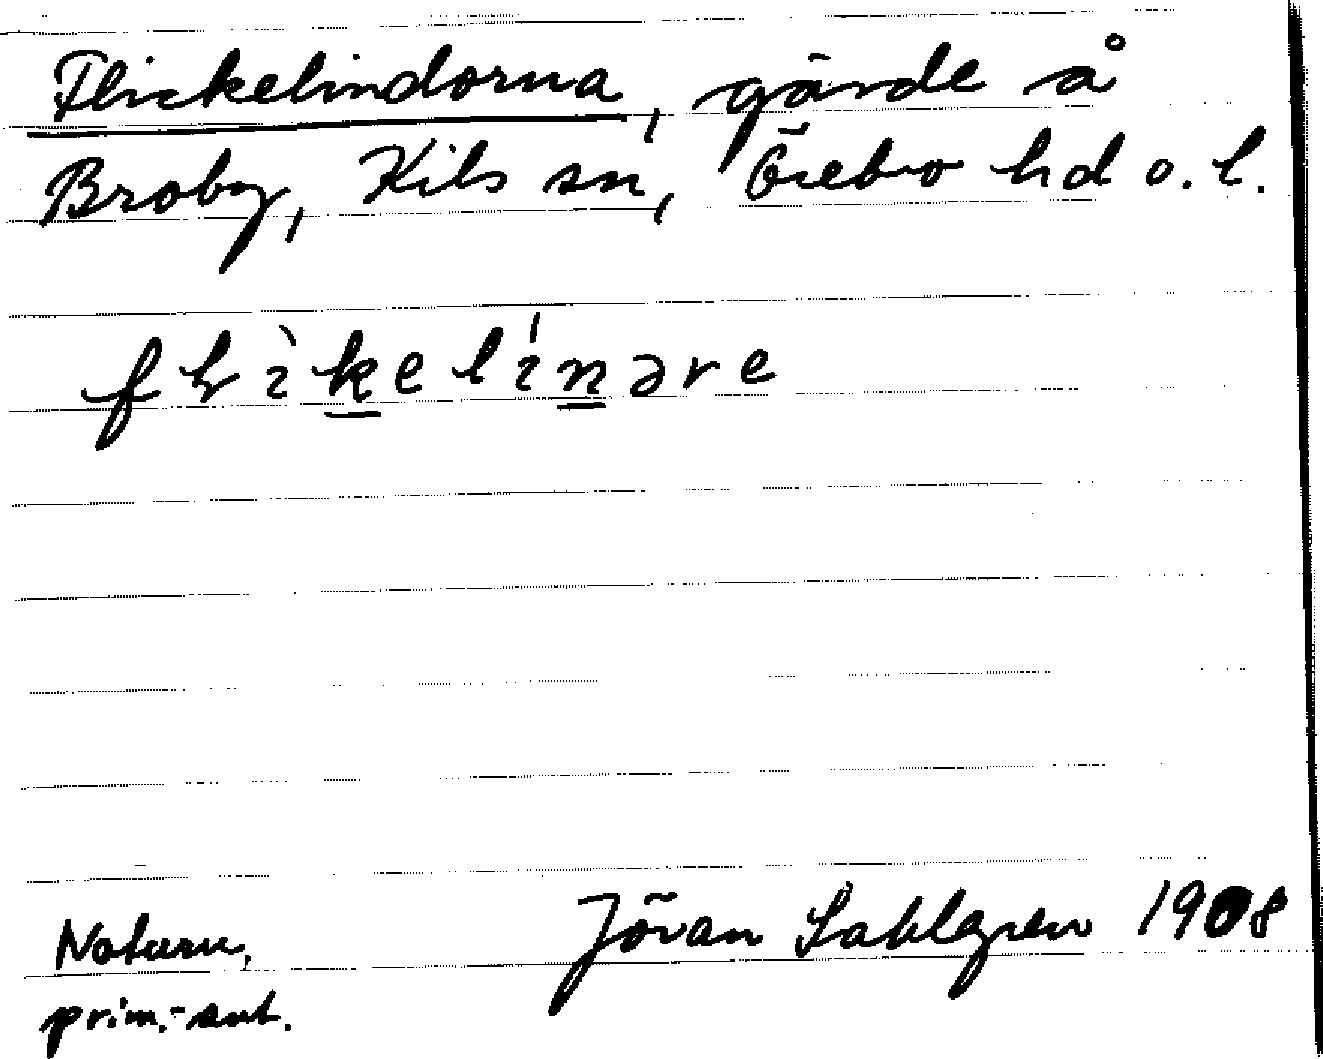 Flickelindorna, gärde å
Broby, Kils sn, Örebro hd o. l.
flìkelínəre
Naturn. Jöran Sahlgren 1908
prim.-ant.